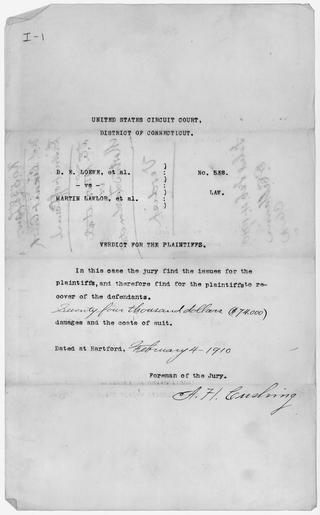 I-1
UNITED STATES CIRCUIT COURT,
DISTRICT OF CONNECTICUT.
D. E. LOEWE, et al.
- vs -
MARTIN LAWLOR, et al.
No. 588.
LAW.
VERDICT FOR THE PLAINTIFFS.
In this case the jury find the issues for the
plaintiffs, and therefore find for the plaintiffs to re-
cover of the defendants.
Seventy four thousand dollars ($74,000)
damages and the costs of suit.
Dated at Hartford, February 4 - 1910
Foreman of the Jury.
A. H. Cushing